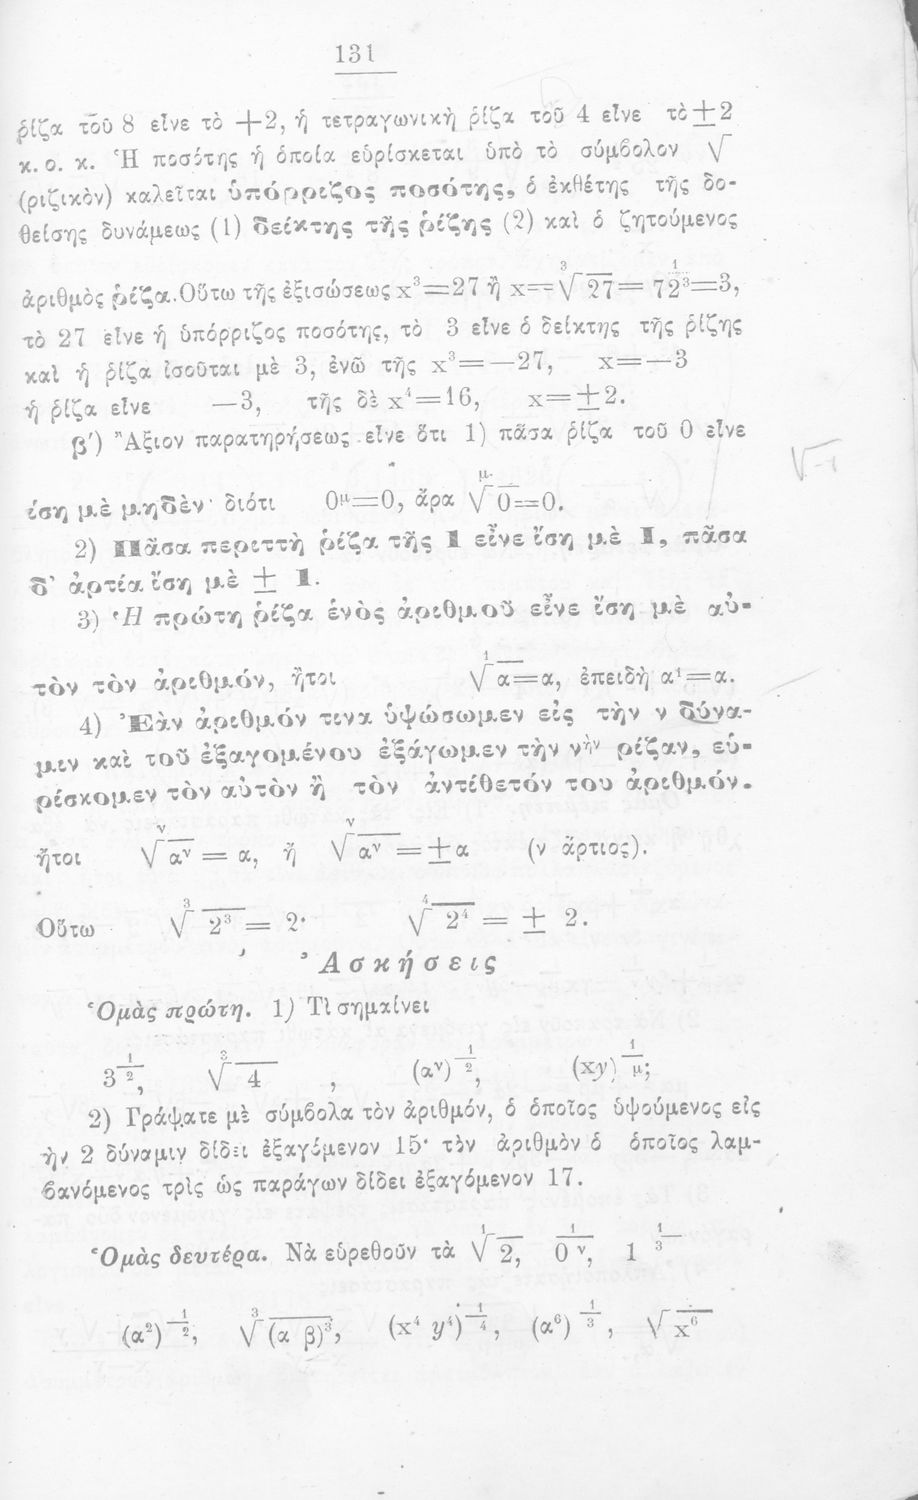 131
ῥίζα τοῦ 8 εἶνε τὸ +2, ἡ τετραγωνικὴ ῥίζα τοῦ 4 εἶνε τὸ ±2
κ. ο. κ. Ἡ ποσότης ἡ ὁποία εὑρίσκεται ὑπὸ τὸ σύμβολον √
(ριζικὸν) καλεῖται ὑπόρριζος ποσότης, ὁ ἐκθέτης τῆς δο-
θείσης δυνάμεως (1) δείκτης τῆς ῥίζης (2) καὶ ὁ ζητούμενος
ἀριθμὸς ῥίζα. Οὕτω τῆς ἐξισώσεως x³=27 ἢ x=∛27= 72^(1/3)=3,
τὸ 27 εἶνε ἡ ὑπόρριζος ποσότης, τὸ 3 εἶνε ὁ δείκτης τῆς ῥίζης
καὶ ἡ ῥίζα ἰσοῦται μὲ 3, ἐνῶ τῆς x³=—27, x=—3
ἡ ῥίζα εἶνε —3, τῆς δὲ x⁴=16, x=±2.
β′) Ἄξιον παρατηρήσεως εἶνε ὅτι 1) πᾶσα ῥίζα τοῦ 0 εἶνε
ἴση μὲ μηδὲν· διότι 0^μ=0, ἄρα ^μ√0=0.
2) Πᾶσα περιττὴ ῥίζα τῆς 1 εἶνε ἴση μὲ 1, πᾶσα
δ' ἀρτία ἴση μὲ ± 1.
3) Ἡ πρώτη ῥίζα ἑνὸς ἀριθμοῦ εἶνε ἴση μὲ αὐ-
τὸν τὸν ἀριθμόν, ἤτοι ¹√α=α, ἐπειδὴ α¹=α.
4) Ἐὰν ἀριθμόν τινα ὑψώσωμεν εἰς τὴν ν δύνα-
μιν καὶ τοῦ ἐξαγομένου ἐξάγωμεν τὴν ν^ὴν ρίζαν, εὑ-
ρίσκομεν τὸν αὐτὸν ἢ τὸν ἀντίθετόν του ἀριθμόν.
ἤτοι ^ν√α^ν = α, ἢ ^ν√α^ν =±α (ν ἄρτιος).
Οὕτω ∛2³ = 2· ∜2⁴ = ± 2.
Ἀσκήσεις
Ὁμὰς πρώτη. 1) Τί σημαίνει
3^(1/2), ∛4 , (α^ν)^(1/2), (xy)^(1/μ);
2) Γράψατε μὲ σύμβολα τὸν ἀριθμόν, ὁ ὁποῖος ὑψούμενος εἰς
ὴν 2 δύναμιν δίδει ἐξαγόμενον 15· τὸν ἀριθμὸν ὁ ὁποῖος λαμ-
βανόμενος τρὶς ὡς παράγων δίδει ἐξαγόμενον 17.
Ὁμὰς δευτέρα. Νὰ εὑρεθοῦν τὰ ¹√2, 0^(1/ν), 1^(1/3)
(α²)^(1/2), ∛(α β)³, (x⁴ y⁴)^(1/4), (α⁶)^(1/3), √x⁶